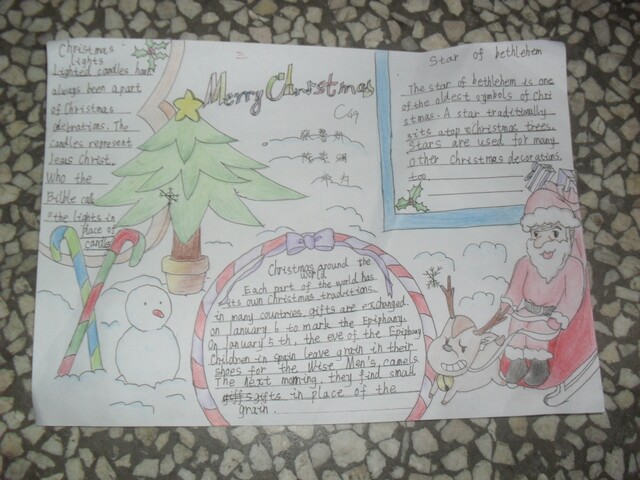 Christmas
lights
Lighted candles have
always been a part
of Christmas
celebrations. The
candles represent
Jesus Christ.
Who the
Bilble
"the lights in
place of
candles
Merry Christmas
C49
Star of bethlehem
The star of bethlehem is one
of the oldest symbols of Chri
stmas. A star traditionally
sits atop Christmas trees.
Stars are used for many
other Christmas decorations,
too.
Christmas around the
world
Each part of the world has
its own Christmas traditions.
in many countries, gifts are exchanged
on january 6 to mark the Epiphany.
On january 5th, the eve of the Epiphany
Children in spain leave grain in their
shoes for the Wise Men's camels
The next morning, they find small
gifts in place of the
grain.